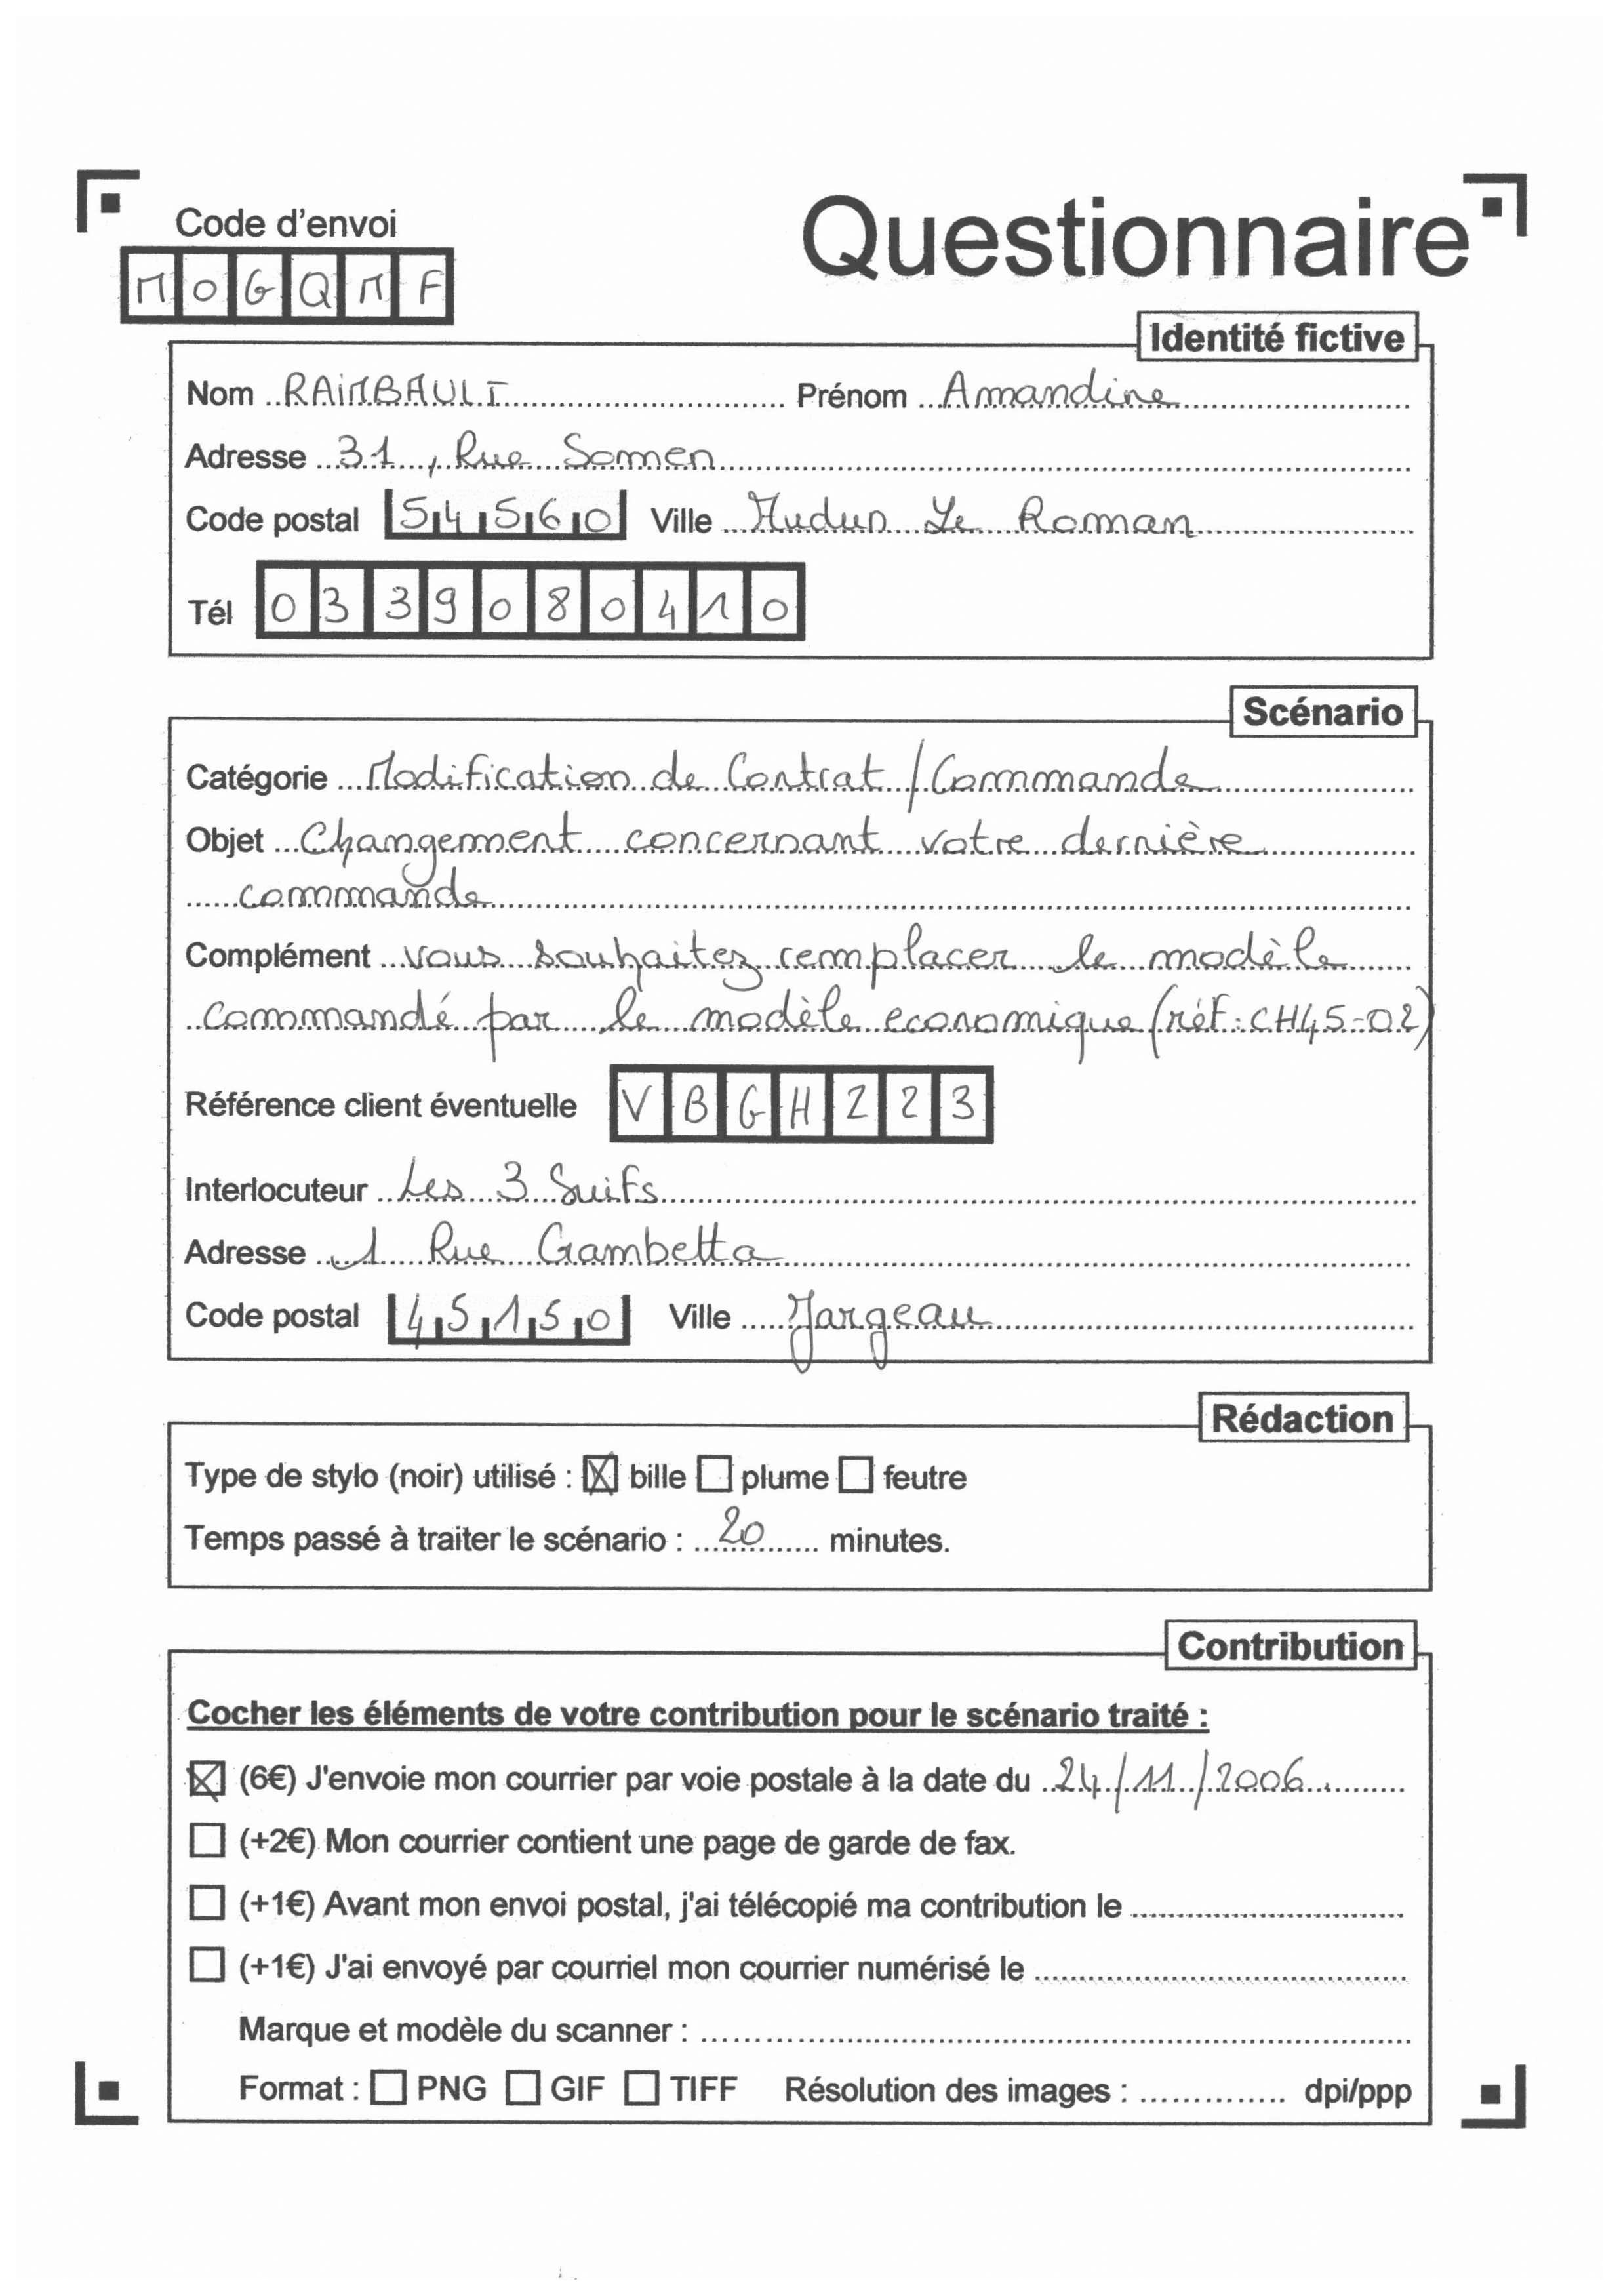 Code d'envoi
Questionnaire
MOGQMF
Identité fictive
Nom RAIMBAULT Prénom Amandine
Adresse 31, Rue Somen
Code postal 54560 Ville Audun Le Roman
Tél 0339080410
Scénario
Catégorie Modification de Contrat / Commande
Objet Changement concernant votre dernière
commande
Complément Vous souhaitez remplacer le modèle
commandé par le modèle economique (réf: CH45-02)
Référence client éventuelle VBGHZ23
Interlocuteur Les 3 Suifs
Adresse 1 Rue Gambetta
Code postal 45150 Ville Jargeau
Rédaction
Type de stylo (noir) utilisé : ☒ bille ☐ plume ☐ feutre
Temps passé à traiter le scénario : 20 minutes.
Contribution
Cocher les éléments de votre contribution pour le scénario traité :
☒ (6€) J'envoie mon courrier par voie postale à la date du 24/11/2006
☐ (+2€) Mon courrier contient une page de garde de fax.
☐ (+1€) Avant mon envoi postal, j'ai télécopié ma contribution le
☐ (+1€) J'ai envoyé par courriel mon courrier numérisé le
Marque et modèle du scanner :
Format : ☐ PNG ☐ GIF ☐ TIFF Résolution des images : dpi/ppp